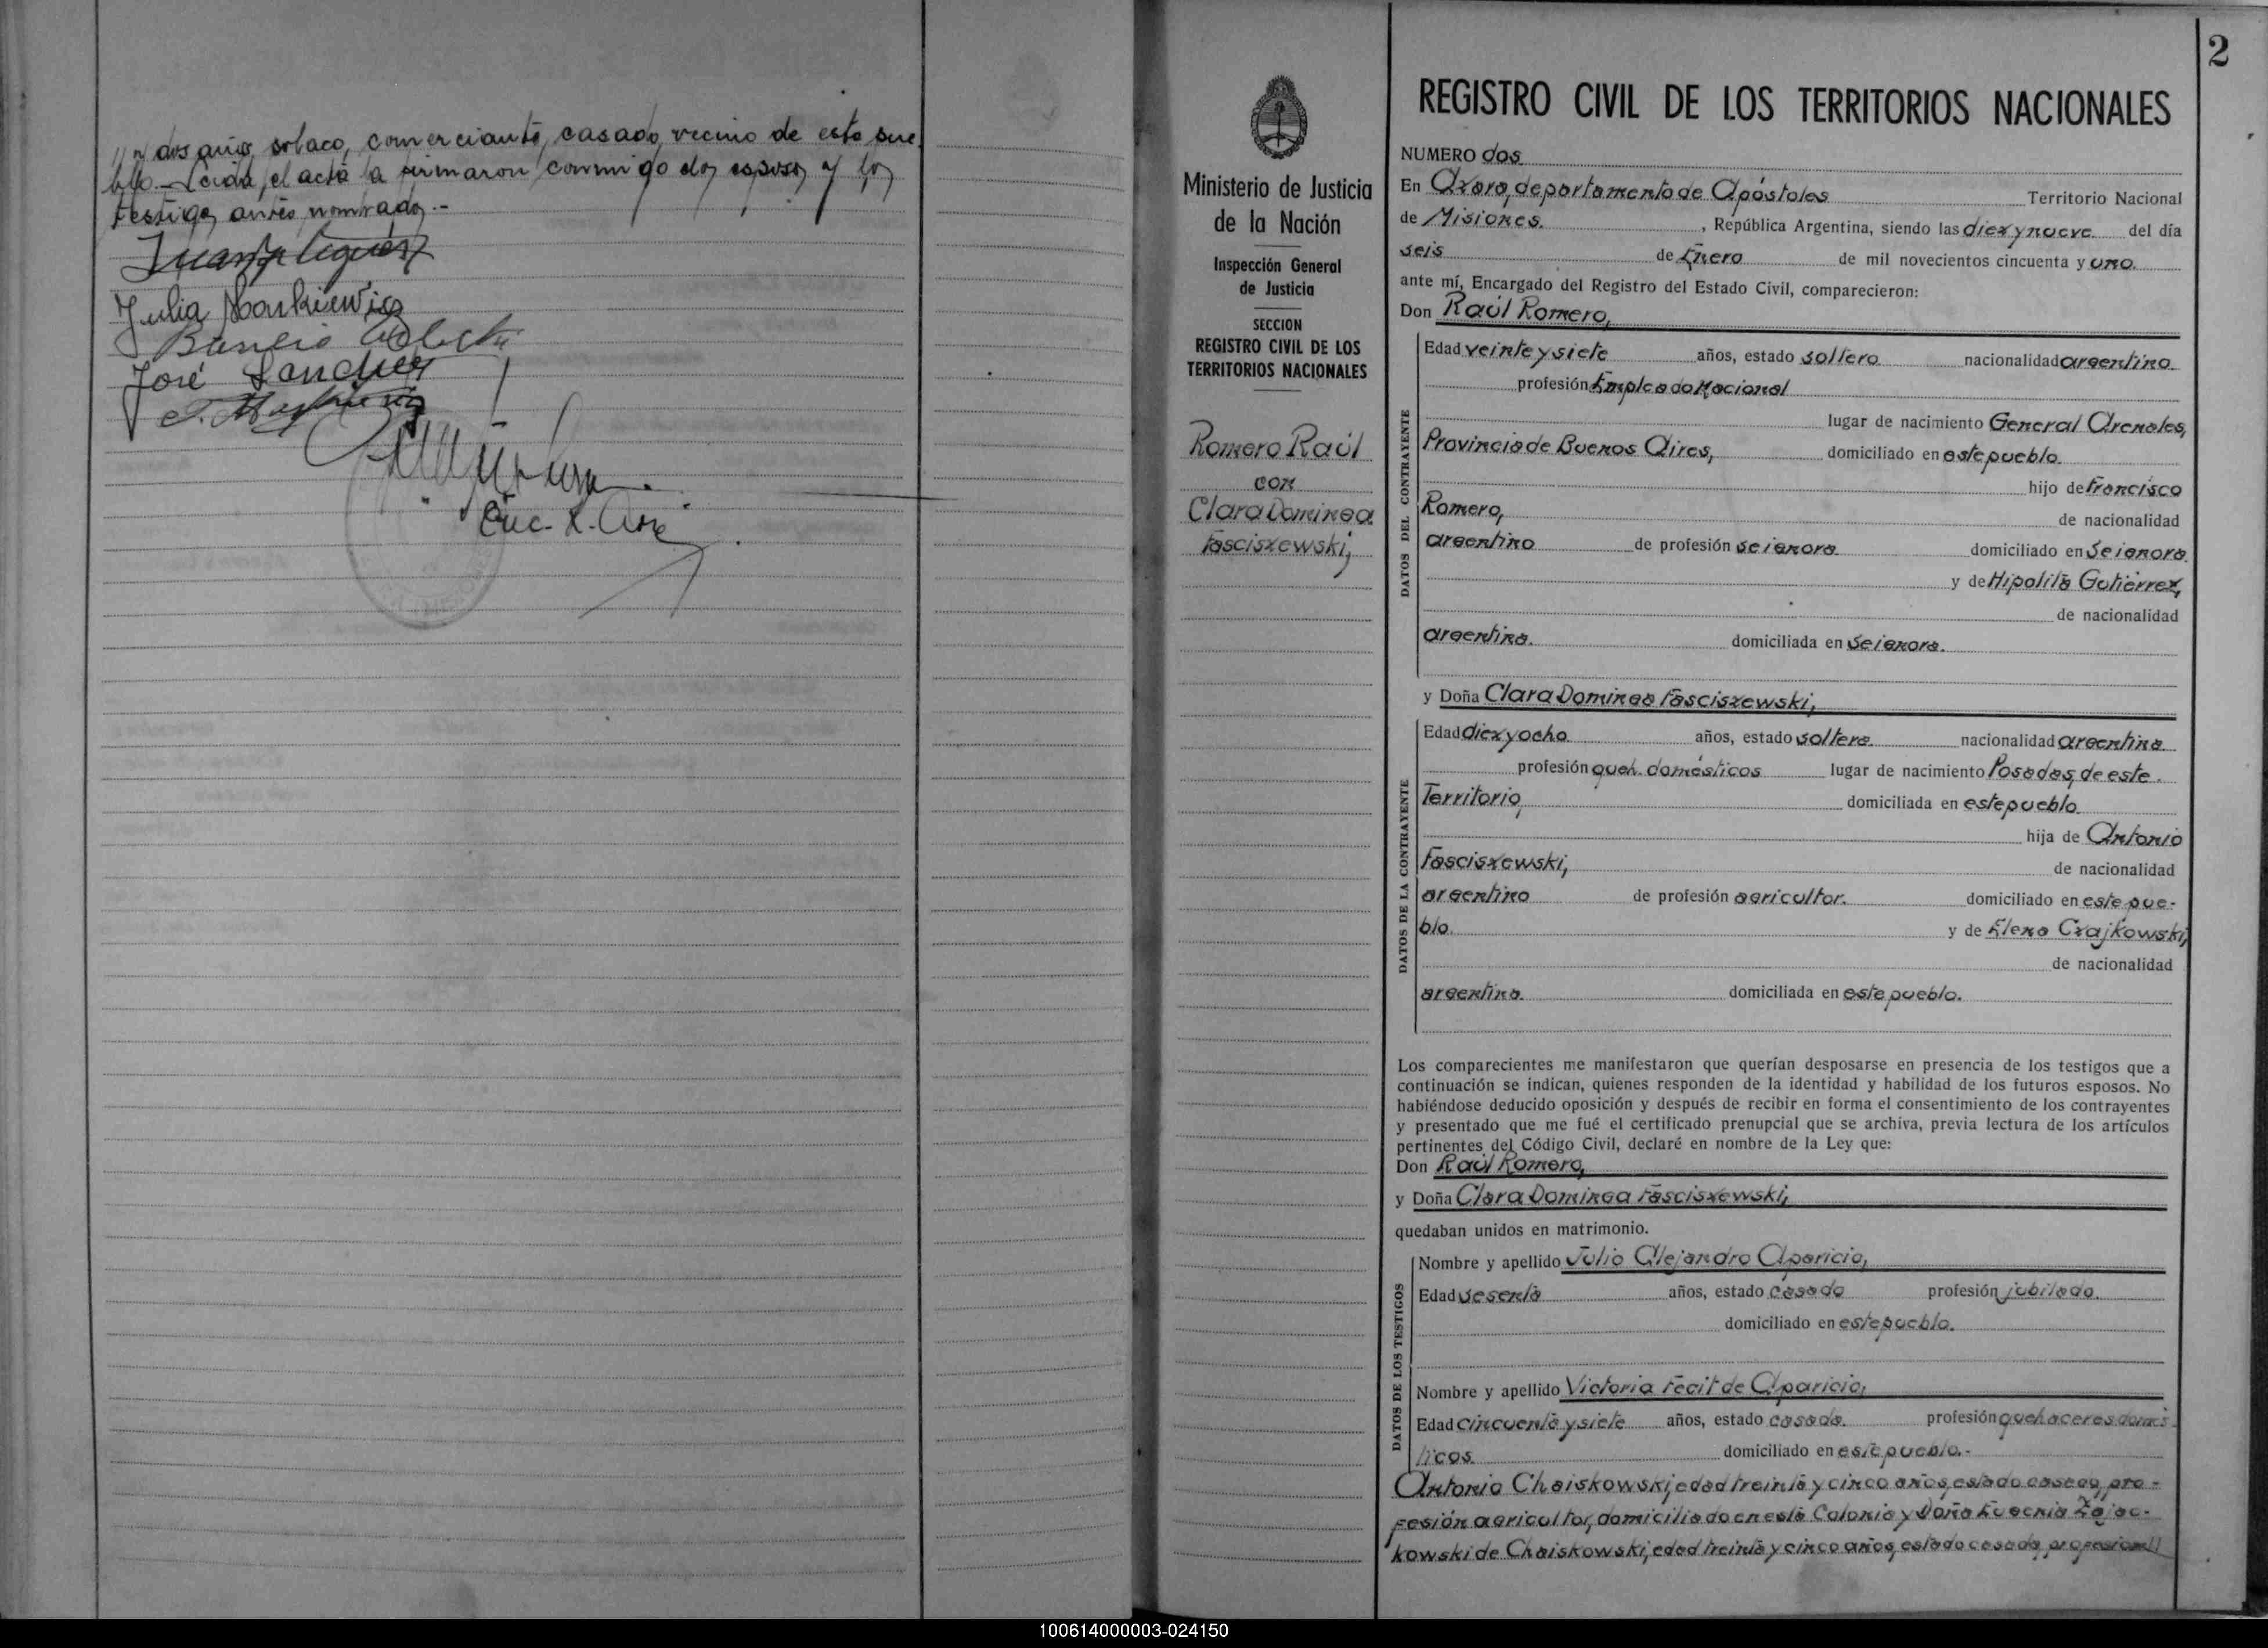 y dos años, polaco, comerciante, casado, vecino de este pue
blo.- Leida, el acta la firmaron conmigo los esposos y los
testigos antes nombrados.-
Julia
José Sanchez
Enc. R.
2
REGISTRO CIVIL DE LOS TERRITORIOS NACIONALES
Ministerio de Justicia
de la Nación
Inspección General
de Justicia
SECCION
REGISTRO CIVIL DE LOS
TERRITORIOS NACIONALES
Romero Raúl
con
Clara Dominga
Fasciszewski,
NUMERO dos
En Azara, departamento de Apóstoles Territorio Nacional
de Misiones. , República Argentina, siendo las diez y nueve del día
seis de Enero de mil novecientos cincuenta y uno.
ante mí, Encargado del Registro del Estado Civil, comparecieron:
Don Raúl Romero,
DATOS DEL CONTRAYENTE
Edad veinte y siete años, estado soltero nacionalidad argentino.
profesión Empleado Nacional
lugar de nacimiento General Arenales,
Provincia de Buenos Aires, domiciliado en este pueblo.
hijo de Francisco
Romero, de nacionalidad
argentino de profesión se ignora domiciliado en Se ignora.
y de Hipolita Gutiérrez,
de nacionalidad
argentina. domiciliada en Se ignora.
y Doña Clara Dominga Fasciszewski,
DATOS DE LA CONTRAYENTE
Edad diez y ocho años, estado soltera. nacionalidad argentina
profesión queh. domésticos lugar de nacimiento Posadas, de este
Territorio, domiciliada en este pueblo.
hija de Antonio
Fasciszewski, de nacionalidad
argentino de profesión agricultor. domiciliado en este pue-
blo. y de Elena Czajkowski,
de nacionalidad
argentina. domiciliada en este pueblo.
Los comparecientes me manifestaron que querían desposarse en presencia de los testigos que a
continuación se indican, quienes responden de la identidad y habilidad de los futuros esposos. No
habiéndose deducido oposición y después de recibir en forma el consentimiento de los contrayentes
y presentado que me fué el certificado prenupcial que se archiva, previa lectura de los artículos
pertinentes del Código Civil, declaré en nombre de la Ley que:
Don Raúl Romero,
y Doña Clara Dominga Fasciszewski,
quedaban unidos en matrimonio.
DATOS DE LOS TESTIGOS
Nombre y apellido Julio Alejandro Aparicio,
Edad sesenta años, estado casado profesión jubilado.
domiciliado en este pueblo.
Nombre y apellido Victoria Fecit de Aparicio,
Edad cincuenta y siete años, estado casada. profesión quehaceres domés-
ticos. domiciliado en este pueblo.-
Antonio Chaiskowski, edad treinta y cinco años, estado casado, pro-
fesión agricultor, domiciliado en esta Colonia y Doña Eugenia Zajac-
kowski de Chaiskowski, edad treinta y cinco años, estado casada, profesion//
100614000003-024150